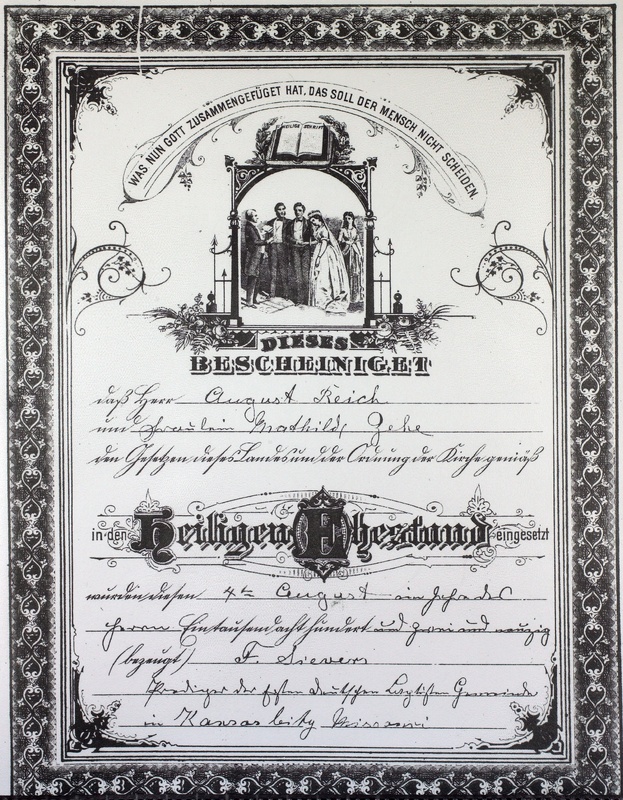 WAS NUN GOTT ZUSAMMENGEFÜGET HAT, DAS SOLL DER MENSCH NICHT SCHEIDEN.
HEILIGE SCHRIFT
DIESES
BESCHEINIGET
daß Herr August Reich
und Fräulein Mathilde Zehe
den Gesetzen dieses Landes und der Ordnung der Kirche gemäß
in den Heiligen Ehestand eingesetzt
wurden diesen 4ten August im Jahr des
Herrn Eintausend acht hundert und zwei und neunzig
(bezeugt) F. Sievers
Prediger der Ersten deutschen Baptisten Gemeinde
in Kansas City Missouri